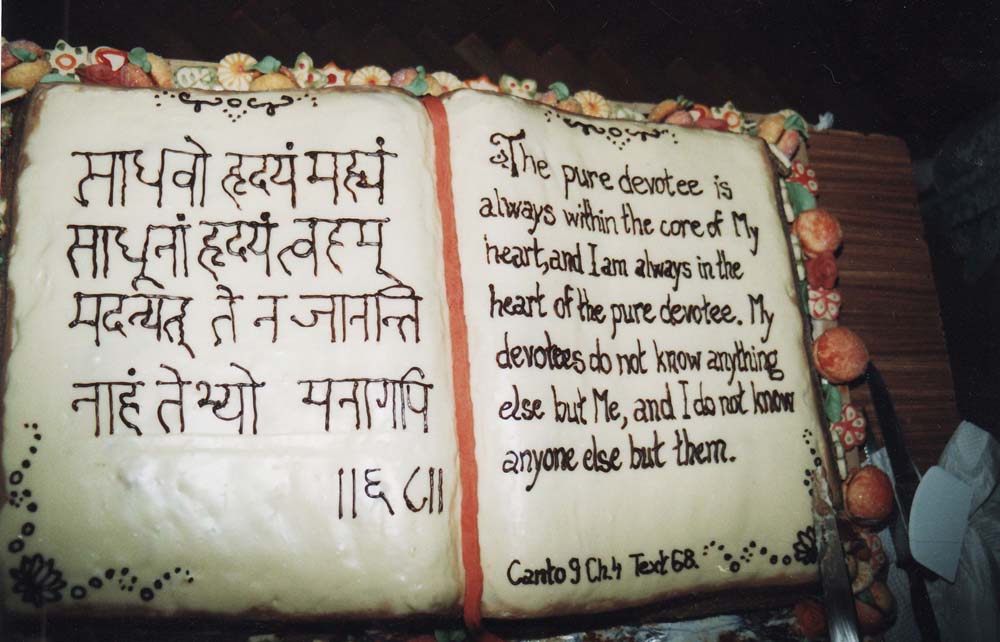 साधवो हृदयं मह्यं
साधूनां हृदयं त्वहम्
मदन्यत् ते न जानन्ति
नाहं तेभ्यो मनागपि
॥६८॥
The pure devotee is
always within the core of My
heart, and I am always in the
heart of the pure devotee. My
devotees do not know anything
else but Me, and I do not know
anyone else but them.
Canto 9 Ch.4 Text 68.